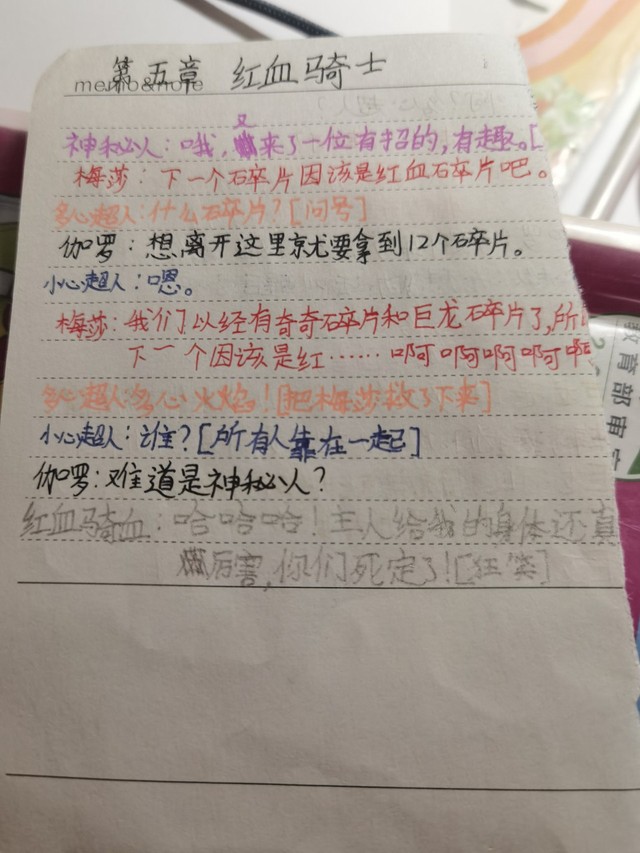 第五章 红血骑士
memo&note
神秘人：哦，又来了一位有招的，有趣。[
梅莎：下一个石碎片因该是红血石碎片吧。
多心超人：什么石碎片？[问号]
伽罗：想离开这里京尤要拿到12个碎片。
小心超人：嗯。
梅莎：我们以经有奇奇碎片和巨龙碎片了，所
下一个因该是红……啊啊啊啊啊
多心超人：多心火焰！[把梅莎救了下来]
小心超人：谁？[所有人靠在一起]
伽罗：难道是神秘人？
红血骑血：哈哈哈！主人给我的身体还真
厉害，你们死定了！[狂笑]
教育部审定